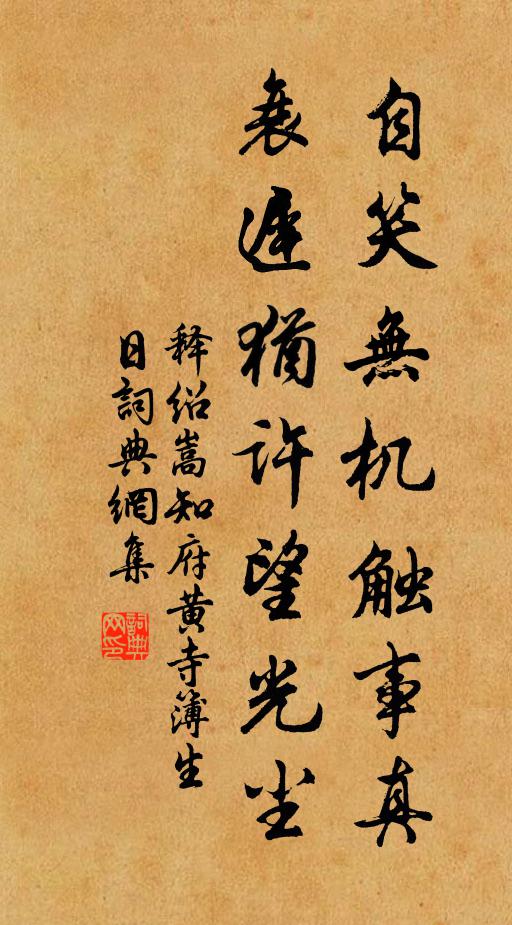 自笑無机触事真
衰遲猶许望光尘
释绍嵩知府黄寺簿生
日詞典網集
詞典
网印